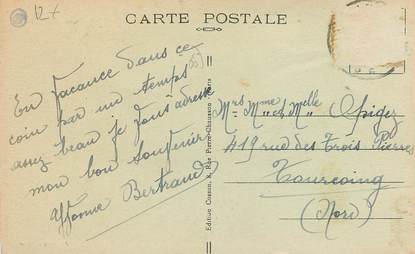 12+
CARTE POSTALE
En vacance dans ce
coin par un temps
assez beau je vous adresse
mon bon souvenir
Yvonne Bertrand
Edition Cosson, Rue Pierre-Chausson Paris
Mrs Mme et Melle
419 rue des Trois Pierres
Tourcoing
(Nord)